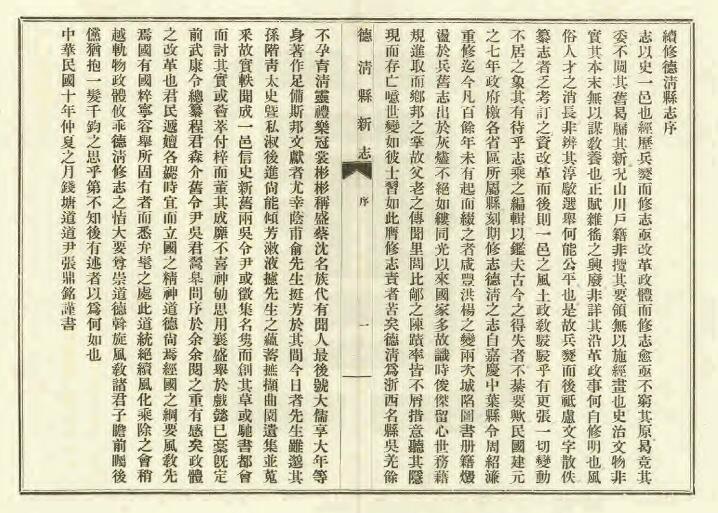 續修德清縣志序
志以史一邑也經歷兵燹而修志亟改革政體而修志愈亟不窮其原曷竟其
委不閱其舊曷屬其新況山川戶籍非攬其要領無以施經畫也史治文物非
實其本末無以謀教養也正賦雜徭之興廢非詳其沿革政事何自修明也風
俗人才之消長非辨其淳駁選舉何能公平也是故兵燹而後祗慮文字散佚
纂志者之考訂之資改革而後則一邑之風土政敎駸駸乎有更張一切變動
不居之象其有待乎志乘之編輯以鑑夫古今之得失者不綦要歟民國建元
之七年政府檄各省區所屬縣刻期修志德清之志自嘉慶中葉縣令周紹濂
重修迄今凡百餘年未有起而綴之者咸豐洪楊之變兩次城陷圖書册籍燬
盪於兵舊志出於灰燼不絕如縷同光以來國家多故識時俊傑留心世務藉
規進取而鄉邦之掌故父老之傳聞里閭比鄰之陳蹟率皆不屑措意聽其隱
現而存亡噫世變如彼士習如此膺修志責者苦矣德清爲浙西名縣吳羌餘
德清縣新志
序
一
不孕育清靈禮樂冠裳彬彬稱盛蔡沈名族代有聞人最後號大儒享大年等
身著作足備斯邦文獻者尤幸蔭甫俞先生挺芳於其間今日者先生雖邈其
孫階青太史曁私淑後進尚能傾芳漱液攄先生之蘊蓄摭擷曲園遺集並蒐
采故實軼聞成一邑信史新舊兩吳令尹或徵集名雋而創其草或馳書都會
而討其實或薈萃付梓而董其成靡不喜神劬思用襄盛舉於戲懿已稾旣定
前武康令總纂程君森介舊令尹吳君鬶皋問序於余余閱之重有感矣政體
之改革也君民遞嬗各謁時宜而立國之精神道德尚焉經國之綱要風敎先
焉國有國粹寧容舉所固有者而悉弁髦之處此道統絕續風化乘除之會稍
越軌物政體攸乖德清修志之恉大要尊崇道德斡旋風敎諸君子瞻前矚後
儻猶抱一髮千鈞之思乎第不知後有述者以爲何如也
中華民國十年仲夏之月錢塘道道尹張鼎銘謹書